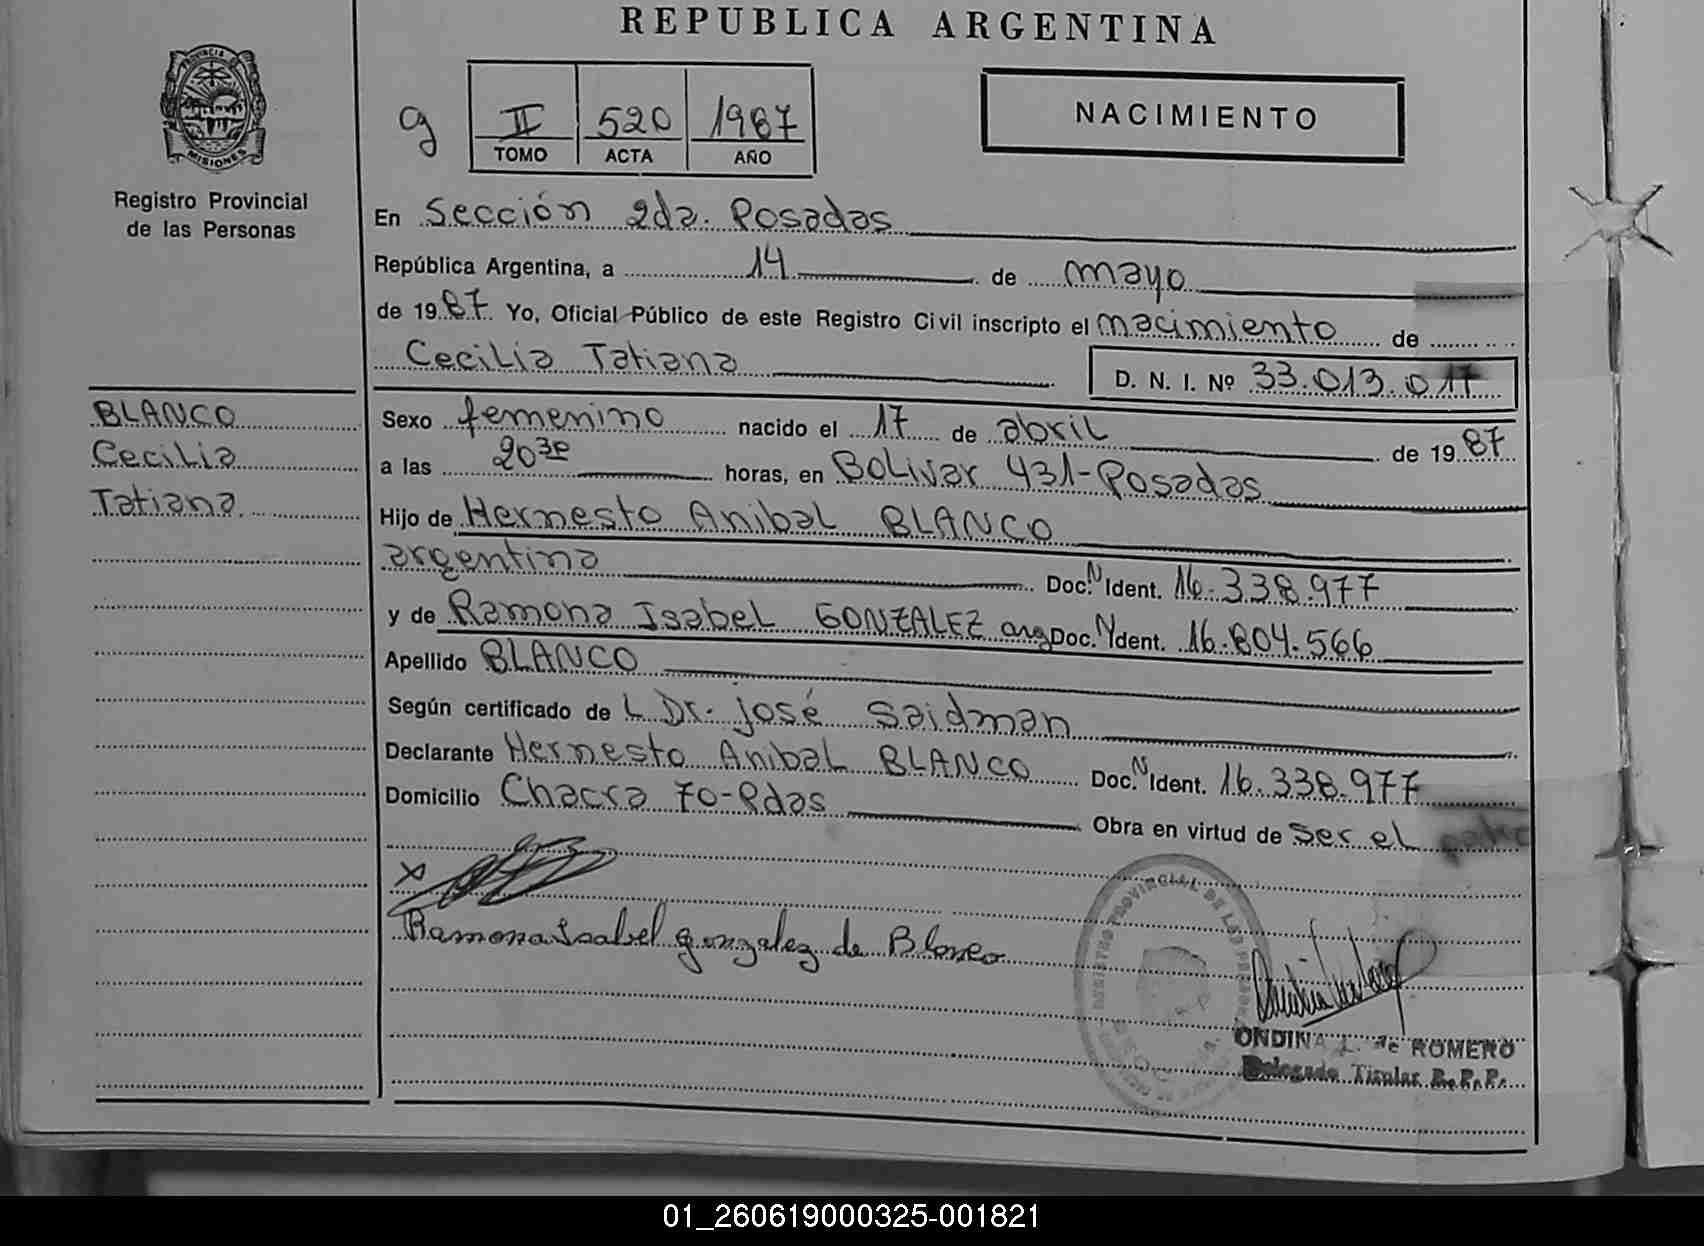 REPUBLICA ARGENTINA
PROVINCIA DE
MISIONES
Registro Provincial
de las Personas
g
II 520 1987
TOMO ACTA AÑO
NACIMIENTO
En Sección 2da. Posadas
República Argentina, a 14 de mayo
de 1987. Yo, Oficial Público de este Registro Civil inscripto el nacimiento de
Cecilia Tatiana
D. N. I. Nº 33.013.017
BLANCO
Cecilia
Tatiana
Sexo femenino nacido el 17 de abril de 1987
a las 20³⁰ horas, en Bolivar 431-Posadas
Hijo de Hernesto Anibal BLANCO
argentina Doc. N Ident. 16.338.977
y de Ramona Isabel GONZALEZ arg Doc. N Ident. 16.804.566
Apellido BLANCO
Según certificado de L Dr. José Saidman
Declarante Hernesto Anibal BLANCO Doc. N Ident. 16.338.977
Domicilio Chacra 70-Pdas
Obra en virtud de ser el padre
x
Ramona Isabel gonzalez de Blanco
REGISTRO PROVINCIAL DE LAS PERSONAS
ONDINA L. de ROMERO
Delegado Titular R.P.P.
01_260619000325-001821